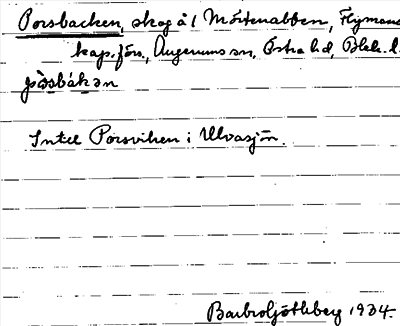 Porsbacken, skog å 1 Mörtenabben, Flymens
kap.förs., Augerums sn, Östra hd, Blek. l.
pòsbákan
Intill Porsviken i Ulvasjön.
Barbro Ljöthberg 1934.